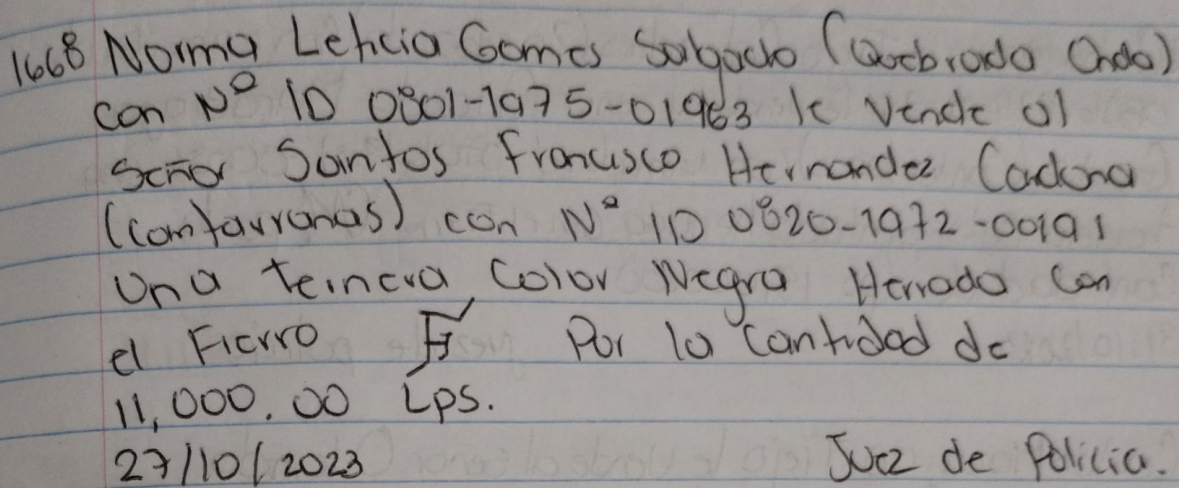 1668 Norma Leticia Gomes Salgado (Quebrada Onda)
con Nº ID 0801-1975-01963 le Vende al
Señor Santos Francisco Hernandez Cadona
(Comfauranas) con Nº ID 0820-1972-00191
Una ternera Color Negra Herrado con
el Fierro Por la Cantidad de
11,000.00 Lps.
27/10/2023 Juez de Policia.